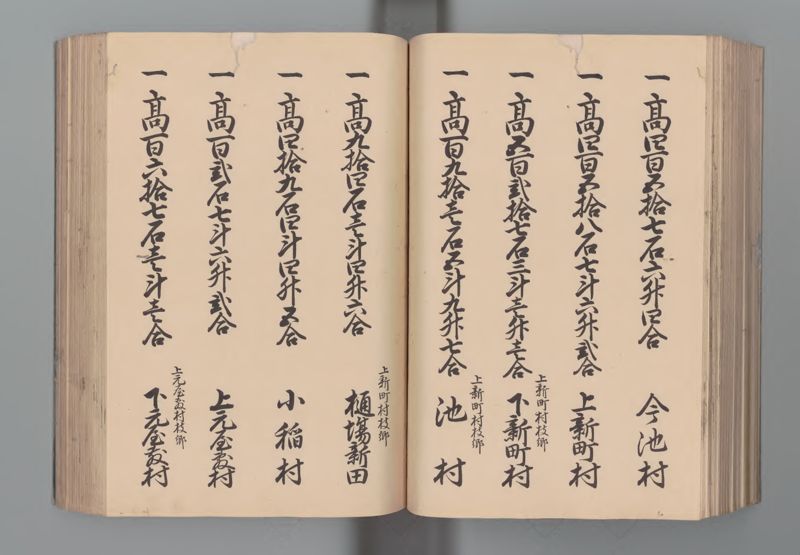 一高四百五拾七石六升四合 今池村
一高四百五拾八石七斗六升弐合 上新町村
一高五百弐拾七石三斗壱升壱合 上新町村枝郷 下新町村
一高百九拾壱石五斗九升七合 上新町村枝郷 池村
一高九拾四石壱斗四升六合 上新町村枝郷 樋場新田
一高四拾九石四斗四升五合 小稲村
一高百弐石七斗六升弐合 上元屋敷村
一高百六拾七石壱斗壱合 上元屋敷村枝郷 下元屋敷村